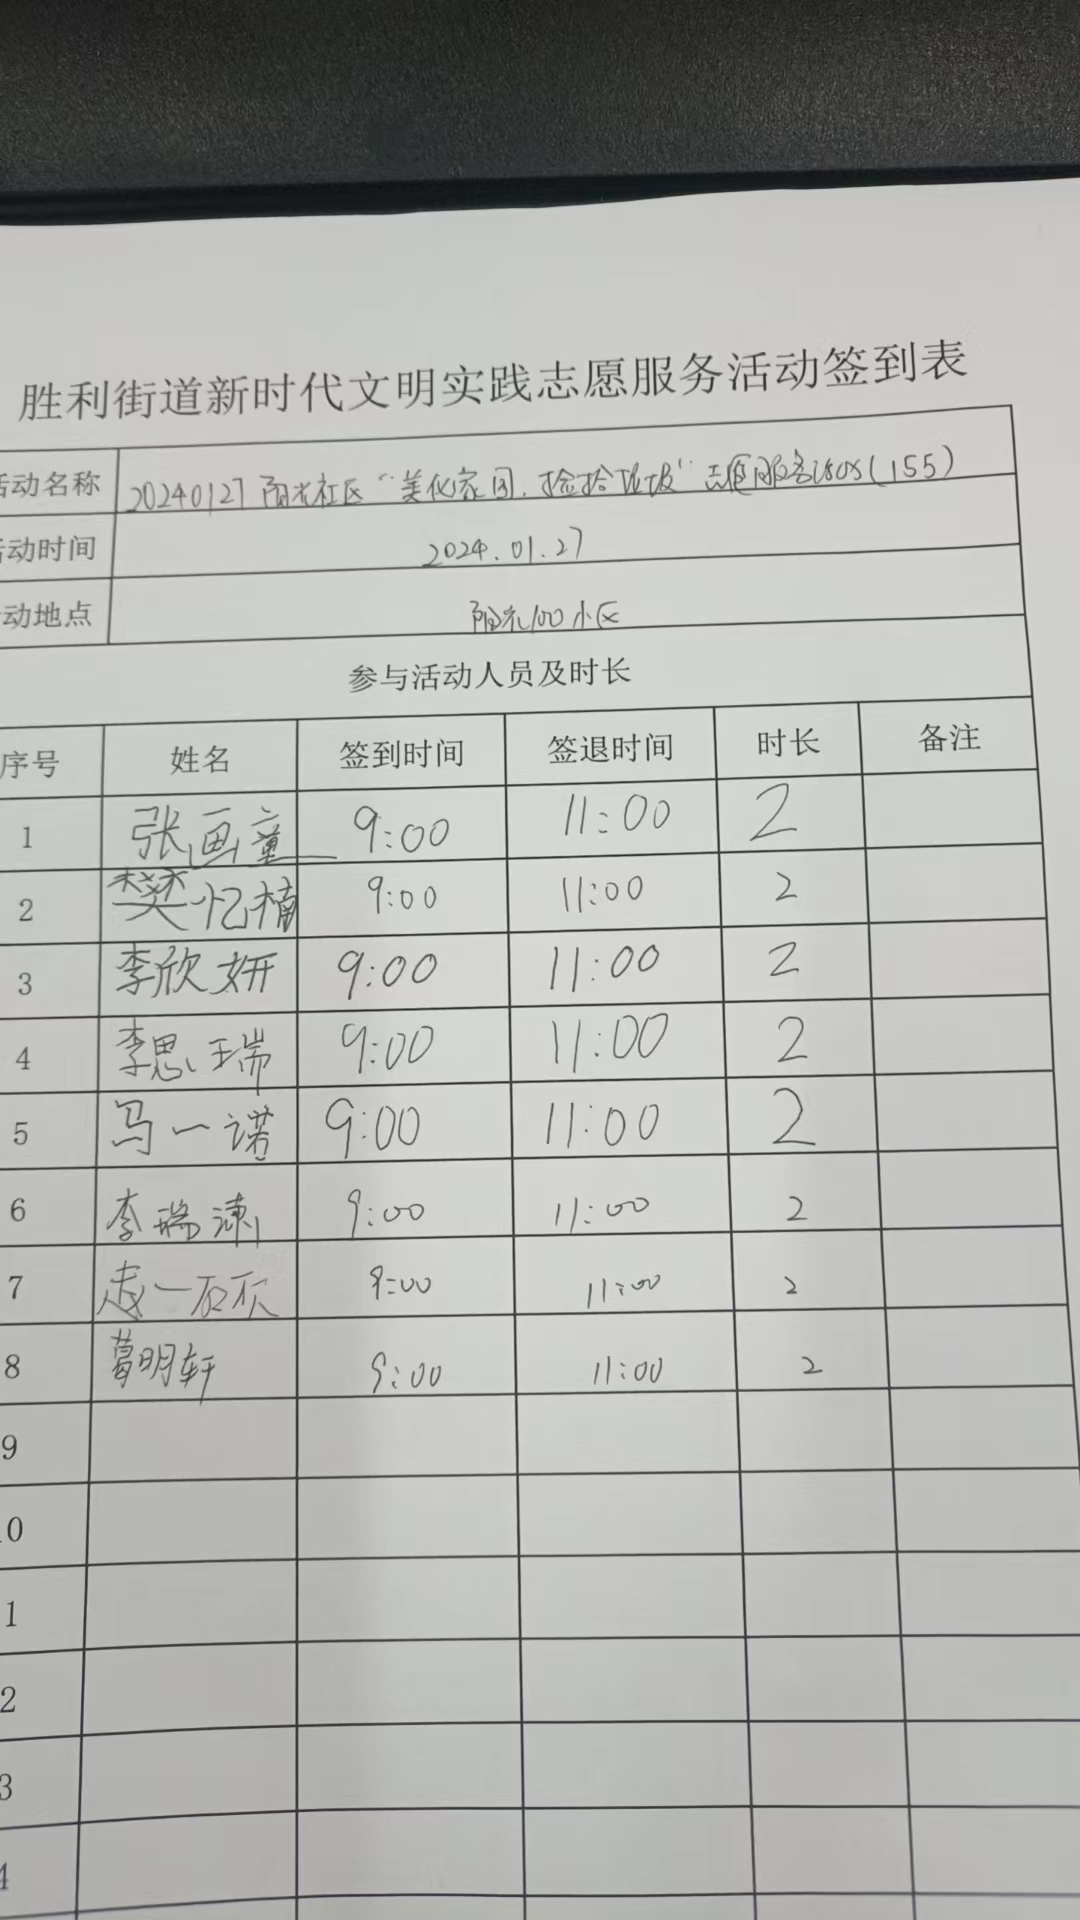 胜利街道新时代文明实践志愿服务活动签到表
活动名称 20240127阳光社区“美化家园，捡拾垃圾”志愿服务活动(155)
活动时间 2024.01.27
活动地点 阳光100小区
参与活动人员及时长
序号 姓名 签到时间 签退时间 时长 备注
1 张画童 9:00 11:00 2
2 樊忆楠 9:00 11:00 2
3 李欣妍 9:00 11:00 2
4 李思瑞 9:00 11:00 2
5 马一诺 9:00 11:00 2
6 李瑞涑 9:00 11:00 2
7 9:00 11:00 2
8 葛明轩 9:00 11:00 2
9
0
1
2
3
4